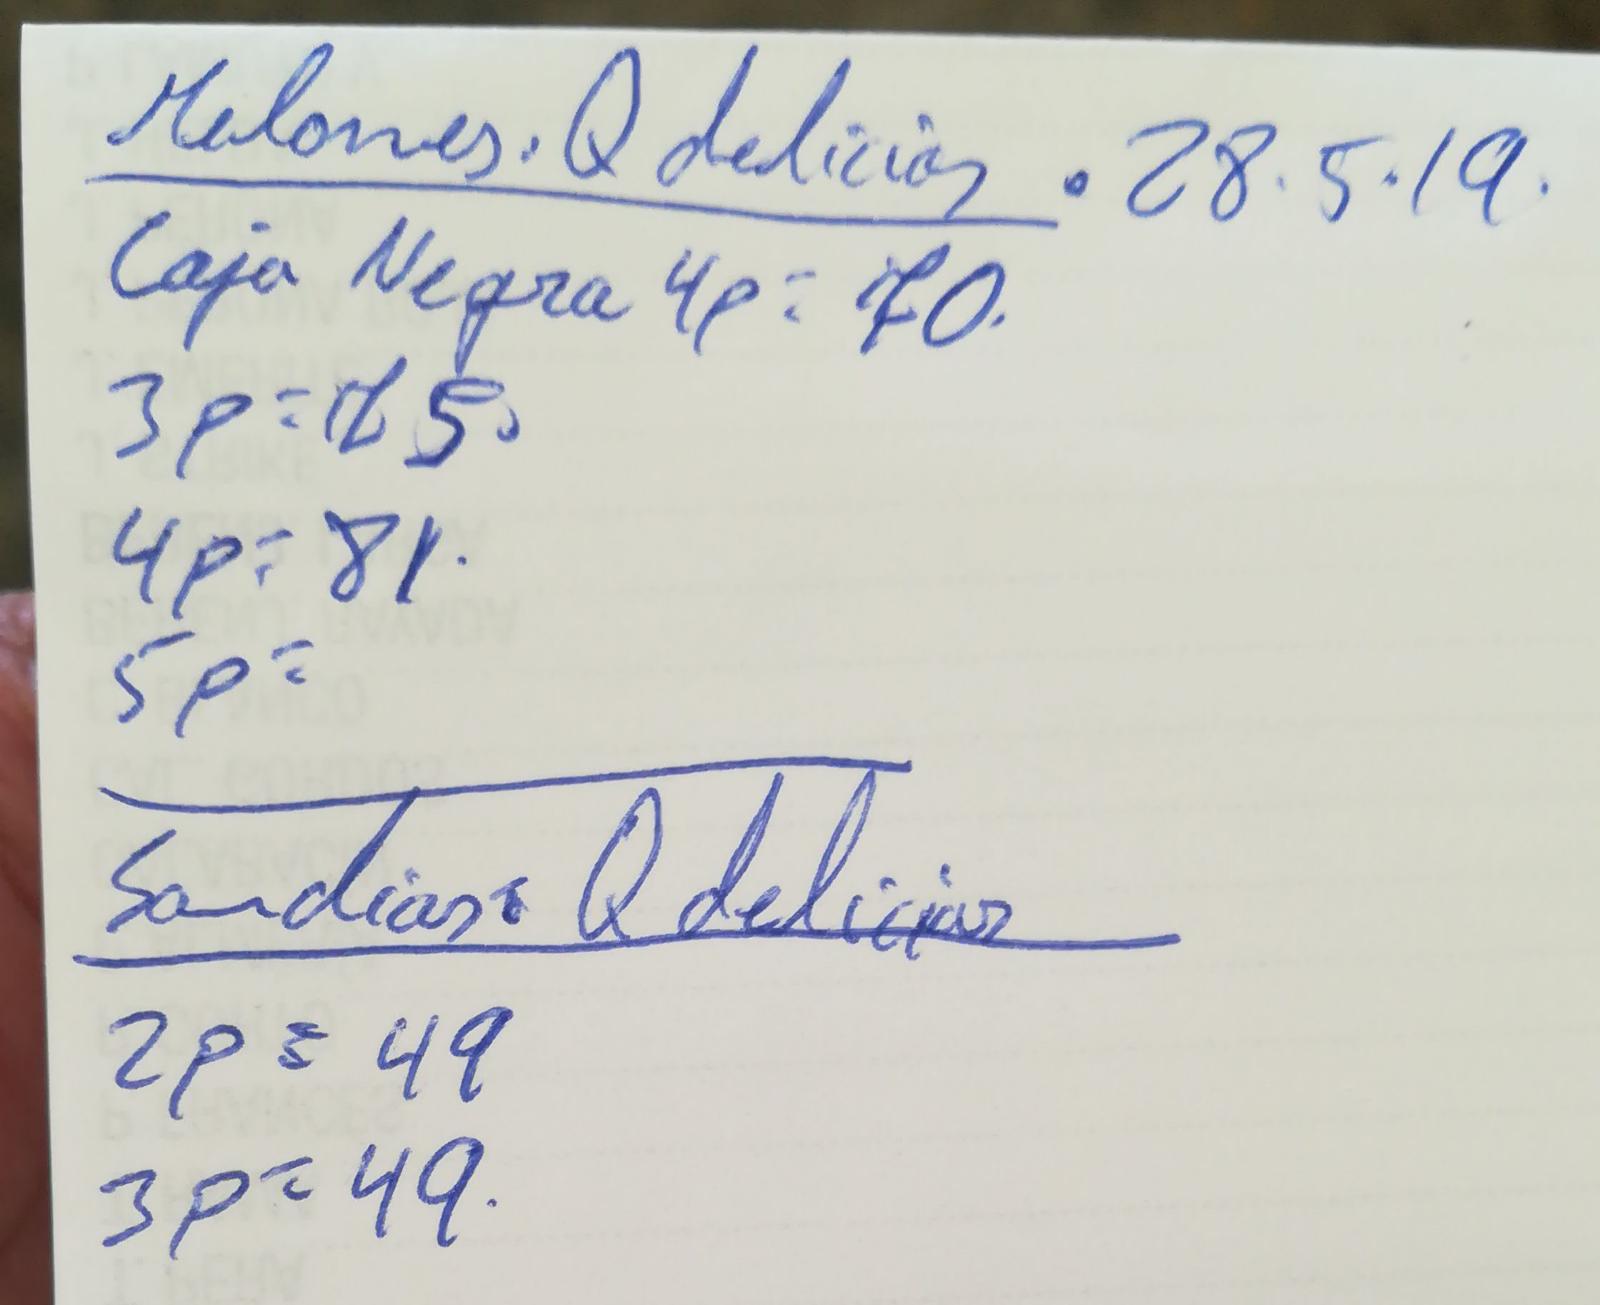 Melones. Q delicias . 28.5.19.
Caja Negra 4p= 70.
3p= 75.
4p= 81.
5p=
Sandias= Q delicias
2p= 49
3p= 49.